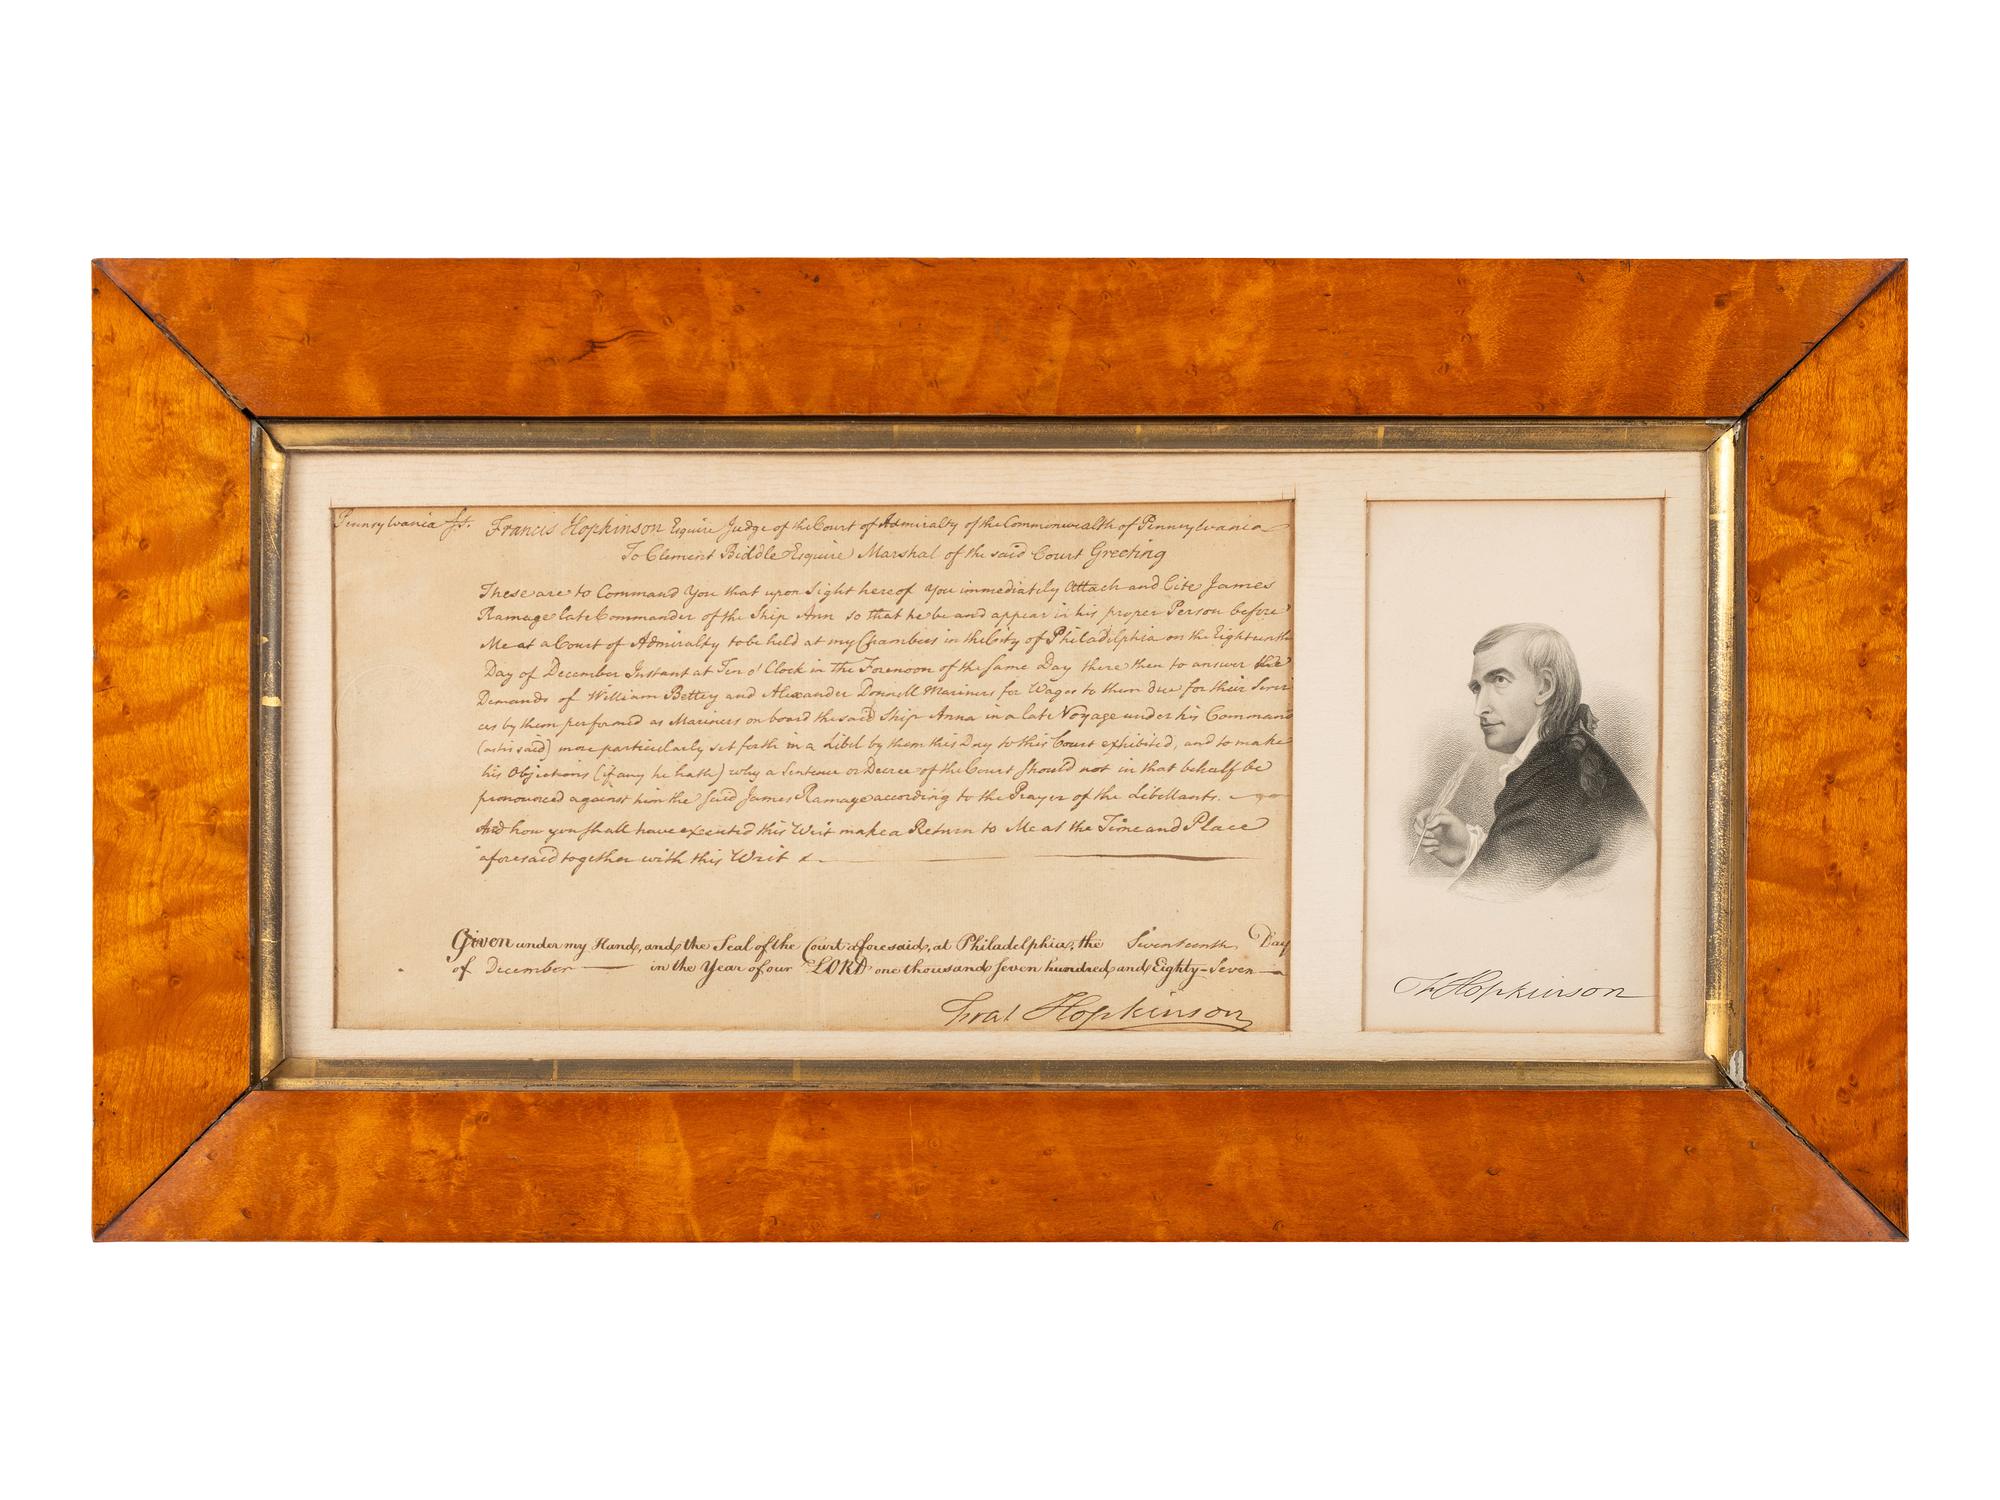 Pennsylvania ss. Francis Hopkinson Esquire Judge of the Court of Admiralty of the Commonwealth of Pennsylvania
To Clement Biddle Esquire Marshal of the said Court Greeting
These are to Command You that upon Sight hereof You immediately Attach and Cite James
Ramage late Commander of the Ship Ann so that he be and appear in his proper Person before
Me at a Court of Admiralty to be held at my Chambers in the City of Philadelphia on the Eighteenth
Day of December Instant at Ten o'Clock in the Forenoon of the Same Day there then to answer the
Demands of William Bettey and Alexander Donnell Mariners for Wages to them due for their Servi
ces by them performed as Mariners on board the said Ship Anna in a late Voyage under his Command
(as tis said) more particularly set forth in a Libel by them this Day to this Court exhibited, and to make
his Objections (if any he hath) why a Sentence or Decree of the Court should not in that behalf be
pronounced against him the said James Ramage according to the Prayer of the Libellants.
And how you shall have executed this Writ make a Return to Me at the Time and Place
aforesaid together with this Writ &.
Given under my Hand, and the Seal of the Court aforesaid, at Philadelphia, the Seventeenth Day
of December in the Year of our LORD one thousand seven hundred and Eighty-Seven
Fras Hopkinson
Fras Hopkinson